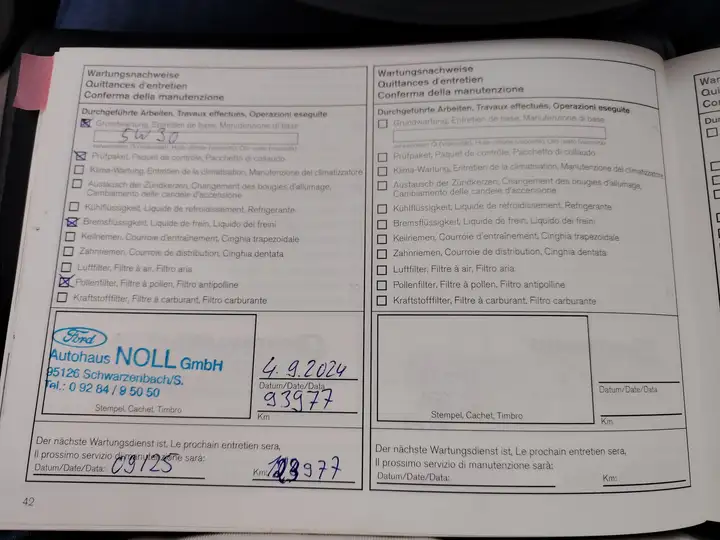 Wartungsnachweise
Quittances d'entretien
Conferma della manutenzione
Durchgeführte Arbeiten, Travaux effectués, Operazioni eseguite
Grundwartung, Entretien de base, Manutenzione di base
5W30
Prüfpaket, Paquet de contrôle, Pacchetto di collaudo
Klima-Wartung, Entretien de la climatisation, Manutenzione del climatizzatore
Austausch der Zündkerzen, Changement des bougies d'allumage,
Cambiamento delle candele d'accensione
Kühlflüssigkeit, Liquide de refroidissement, Refrigerante
Bremsflüssigkeit, Liquide de frein, Liquido dei freini
Keilriemen, Courroie d'entraînement, Cinghia trapezoidale
Zahnriemen, Courroie de distribution, Cinghia dentata
Luftfilter, Filtre à air, Filtro aria
Pollenfilter, Filtre à pollen, Filtro antipolline
Kraftstofffilter, Filtre à carburant, Filtro carburante
Ford
Autohaus NOLL GmbH
95126 Schwarzenbach/S.
Tel.: 0 92 84 / 9 50 50
Stempel, Cachet, Timbro
4.9.2024
Datum/Date/Data
93977
Km
Der nächste Wartungsdienst ist, Le prochain entretien sera,
Il prossimo servizio di manutenzione sarà:
Datum/Date/Data: 09/25
Km:
42
Wartungsnachweise
Quittances d'entretien
Conferma della manutenzione
Durchgeführte Arbeiten, Travaux effectués, Operazioni eseguite
Grundwartung, Entretien de base, Manutenzione di base
Prüfpaket, Paquet de contrôle, Pacchetto di collaudo
Klima-Wartung, Entretien de la climatisation, Manutenzione del climatizzatore
Austausch der Zündkerzen, Changement des bougies d'allumage,
Cambiamento delle candele d'accensione
Kühlflüssigkeit, Liquide de refroidissement, Refrigerante
Bremsflüssigkeit, Liquide de frein, Liquido dei freini
Keilriemen, Courroie d'entraînement, Cinghia trapezoidale
Zahnriemen, Courroie de distribution, Cinghia dentata
Luftfilter, Filtre à air, Filtro aria
Pollenfilter, Filtre à pollen, Filtro antipolline
Kraftstofffilter, Filtre à carburant, Filtro carburante
Stempel, Cachet, Timbro
Datum/Date/Data
Km
Der nächste Wartungsdienst ist, Le prochain entretien sera,
Il prossimo servizio di manutenzione sarà:
Datum/Date/Data:
Km: